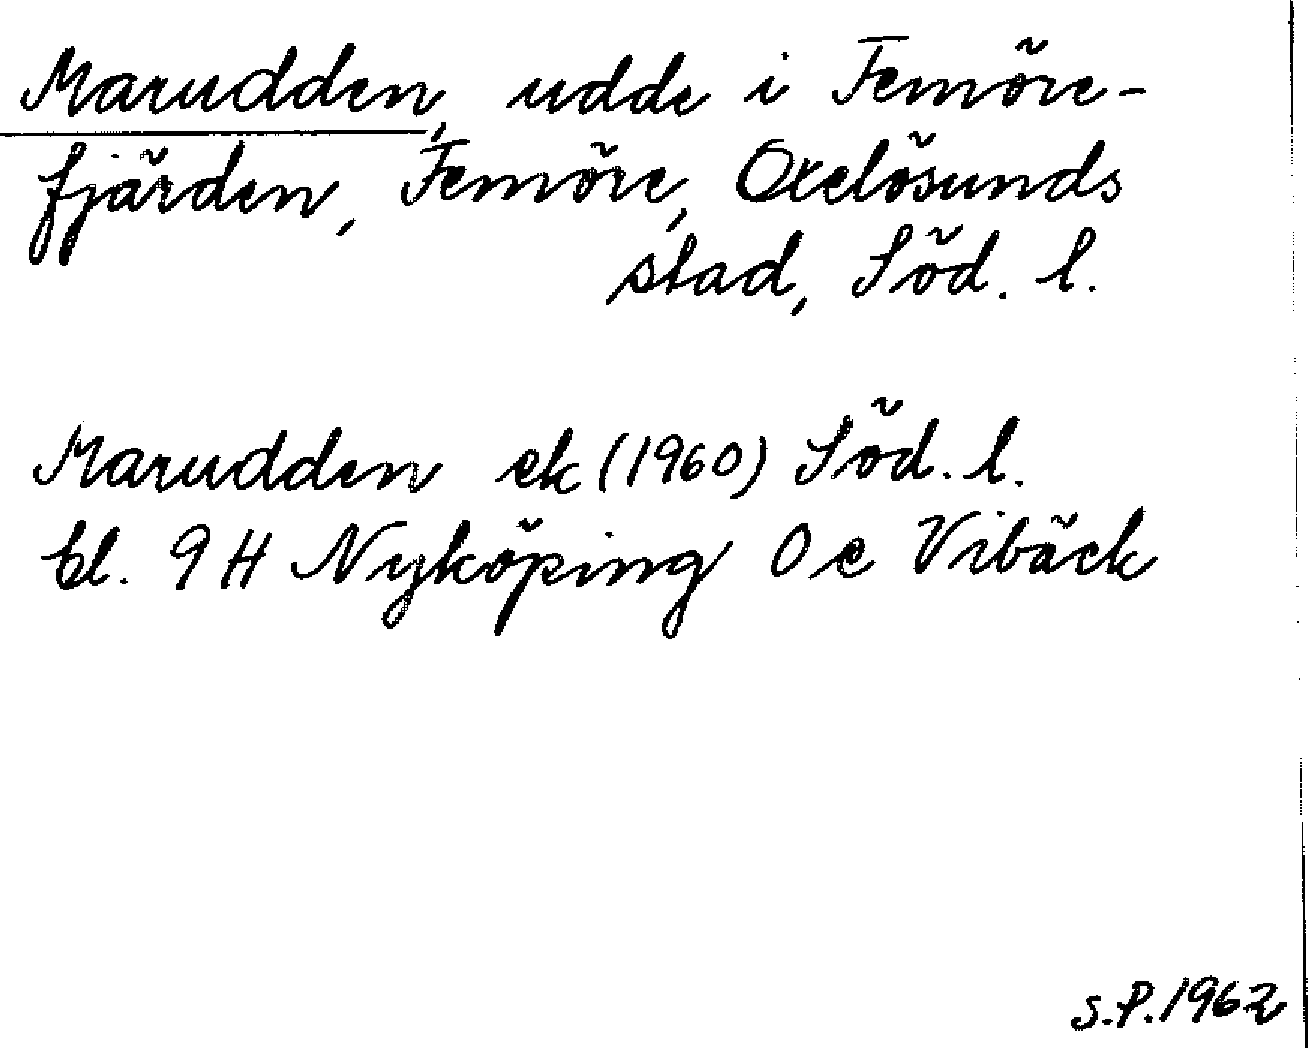 Marudden, udde i Femöre-
fjärden, Femöre, Oxelösunds
stad, Söd. l.
Marudden ek (1960) Söd. l.
bl. 9 H Nyköping 0 e Vibäck
S.P. 1962